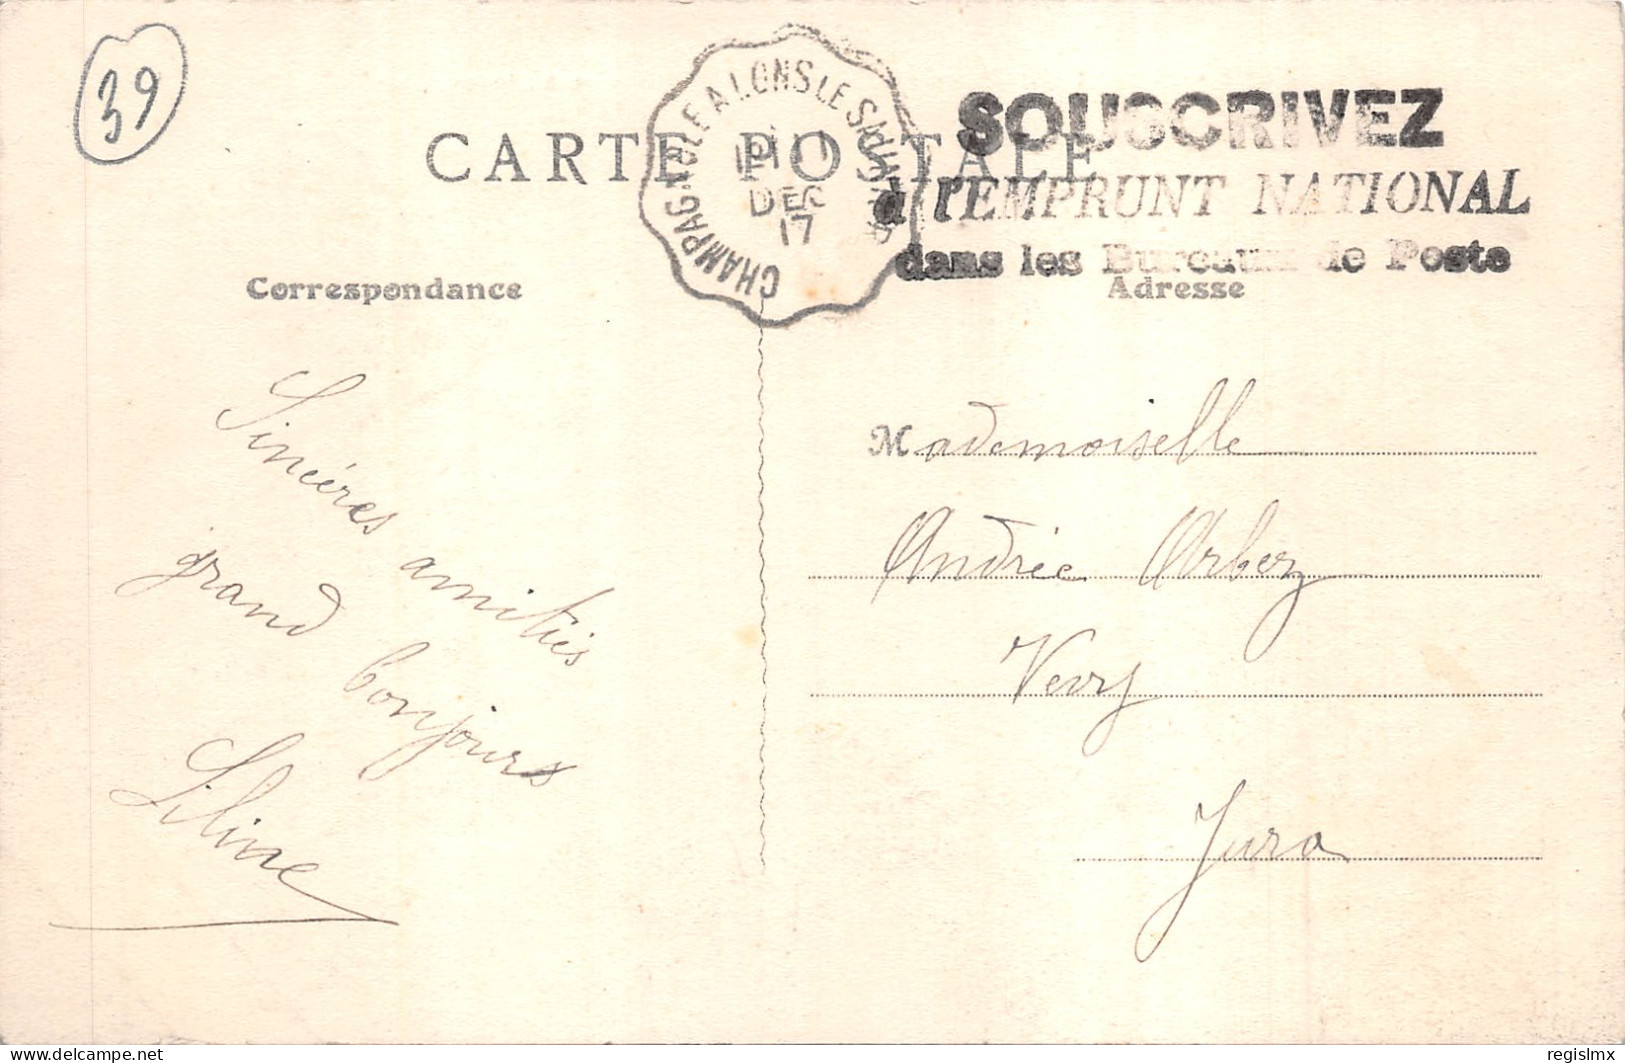 39
CARTE POSTALE
CHAMPAGNOLE A LONS LE SAUNIER
1 DEC
17
SOUSCRIVEZ
à l'EMPRUNT NATIONAL
dans les Bureaux de Poste
Correspondance
Sincères amitiés
grand bonjours
Liline
Adresse
Mademoiselle
Andrée Arbez
Vevy
Jura
www.delcampe.net
regislmx